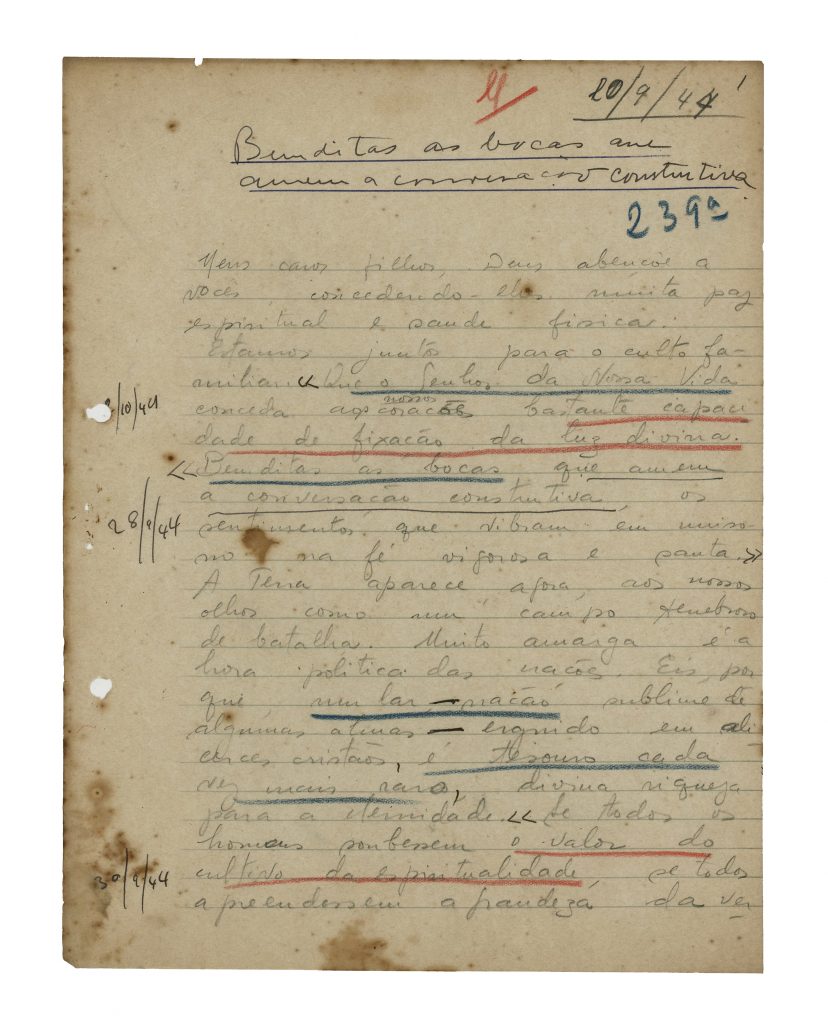 20/9/44
Benditas as bocas que
amem a conversação construtiva
239ª
Meus caros filhos, Deus abençoe a
vocês, concedendo-lhes muita paz
espiritual e saude fisica.
Estamos juntos para o culto fa-
miliar. « Que o Senhor da Nossa Vida
conceda aos nossos corações bastante capaci
dade de fixação da luz divina.
2/10/44
« Benditas as bocas que amem
a conversação construtiva, os
28/9/44
sentimentos que vibram em unisso-
no na fé vigorosa e santa. »
A Terra aparece agora, aos nossos
olhos como um campo tenebroso
de batalha. Muito amarga é a
hora politica das nações. Eis, por
que, um lar, — nação sublime de
algumas almas — erguido em ali
cerces cristãos, é tesouro cada
vez mais raro, divina riqueza
para a eternidade. « Se todos os
homens soubessem o valor do
cultivo da espiritualidade, se todos
30/9/44
apreendessem a grandeza da ver